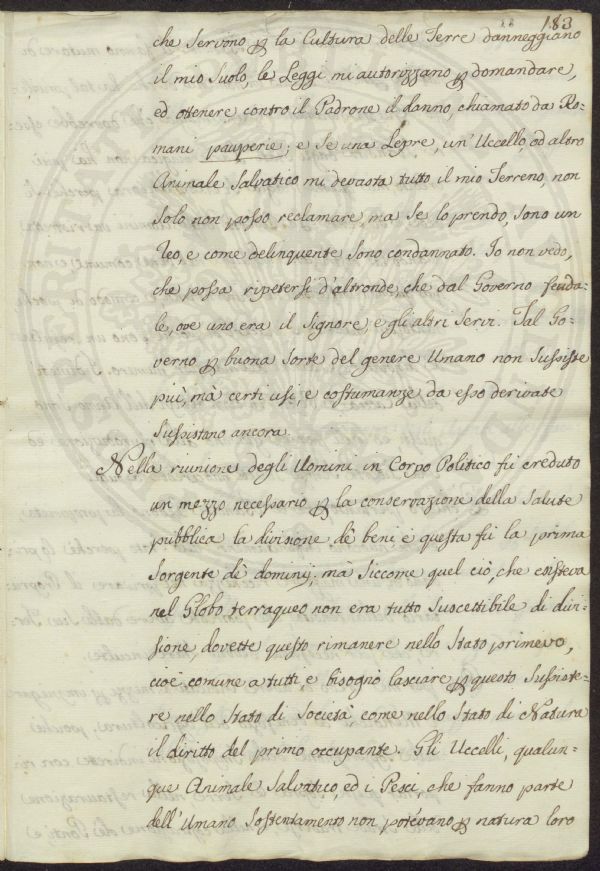 183
che servono p la Cultura delle Terre danneggiano
il mio Suolo, le Leggi mi autorizzano p domandare,
ed ottenere contro il Padrone il danno, chiamato da Ro-
mani pauperie; e se una Lepre, un' Uccello, od altro
Animale Salvatico mi devasta tutto il mio Terreno, non
solo non posso reclamare, ma se lo prendo, sono un
Reo, e come delinquente sono condannato. Io non vedo,
che possa ripetersi d'altronde, che dal Governo feuda-
le, ove uno era il Signore, e gli altri servi. Tal Go-
verno p buona sorte del genere Umano non sussiste
più, mà certi usi, e costumanze da esso derivate
sussistano ancora.
Nella riunione degli Uomini in Corpo Politico fù creduto
un mezzo necessario p la conservazione della salute
pubblica la divisione dè beni e questa fù la prima
sorgente dè dominj; mà siccome quel ciò, che esisteva
nel Globo terraqueo non era tutto suscettibile di divi-
sione, dovette questo rimanere nello stato primevo,
cioè comune a tutti, e bisognò lasciare p questo sussiste-
re nello stato di Società, come nello stato di Natura
il diritto del primo occupante. Gli Uccelli, qualun-
que Animale Salvatico, ed i Pesci, che fanno parte
dell'Umano sostentamento non potevano p natura loro